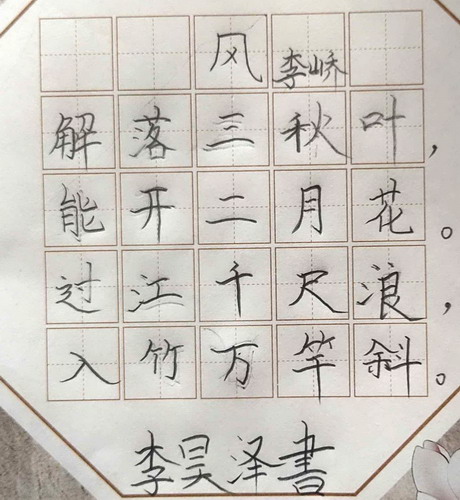 风 李峤
解落三秋叶，
能开二月花。
过江千尺浪，
入竹万竿斜。
李昊泽書